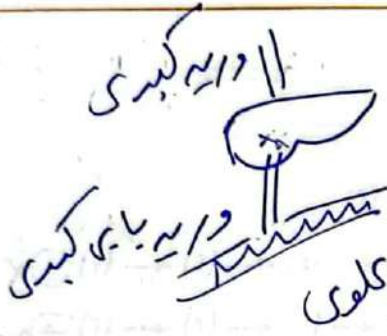 ورید کبدی
ورید باب کبدی